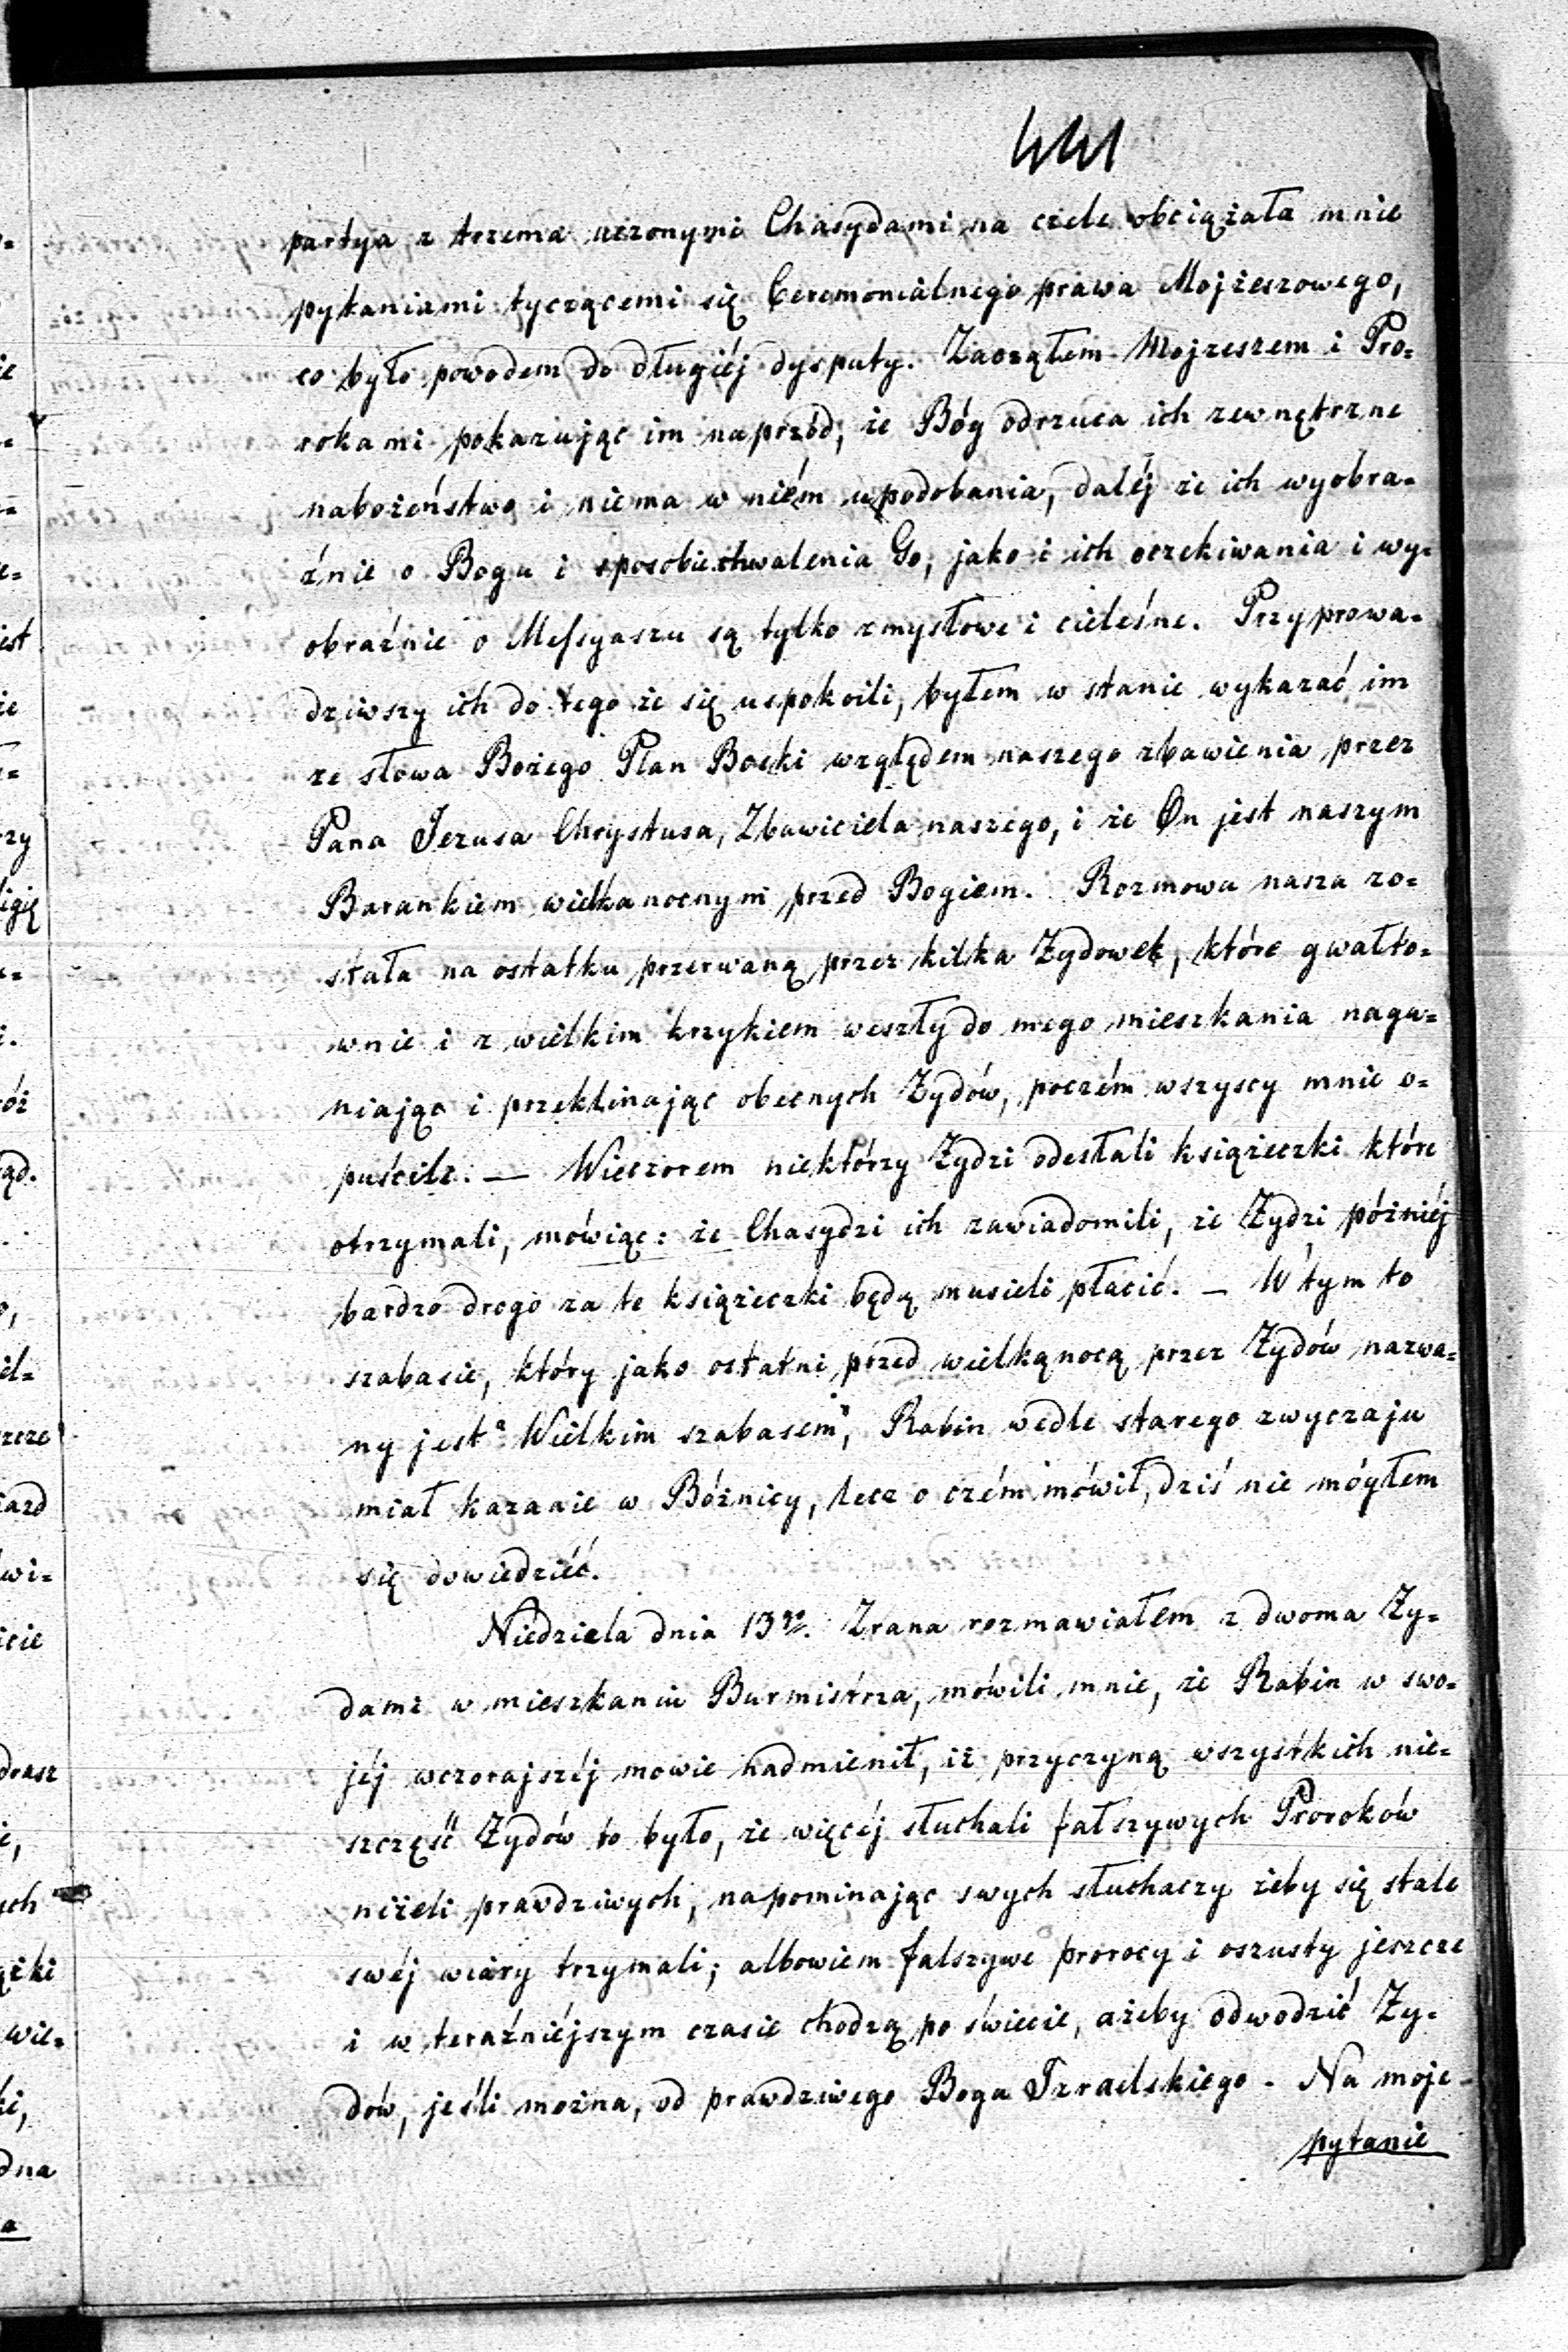 441
partya z trzema uczonymi Chasydami na czele obciążała mnie
pytaniami tyczącemi się Ceremonialnego prawa Mojżeszowego,
co było powodem do długiéj dysputy. Zacząłem Mojzeszem i Pro=
rokami pokazując im naprzód, że Bóg odrzuca ich zewnętrzne
nabożeństwo i niema w niém upodobania, daléj że ich wyobra=
źnie o Bogu i sposobie chwalenia Go, jako i ich oczekiwania i wy=
obraźnie o Messyaszu są tylko zmysłowe i cieleśne. Przyprowa=
dziwszy ich do tego że się uspokoili, byłem w stanie wykazać im
ze słowa Bożego Plan Boski względem naszego zbawienia przez
Pana Jezusa Chrystusa, Zbawiciela naszego, i że On jest naszym
Barankiem wielkanocnym przed Bogiem. Rozmowa nasza zo=
stała na ostatku przerwaną przez kilka Żydowek, które gwałto=
wnie i z wielkim krzykiem weszły do mego mieszkania naga=
niając i przeklinając obecnych Żydów, poczém wszyscy mnie o=
puścili. — Wieczorem niektórzy Żydzi odesłali książeczki które
otrzymali, mówiąc: że Chasydzi ich zawiadomili, że Żydzi późniéj
bardzo drogo za te książeczki będą musieli płacić. — W tym to
szabasie, który jako ostatni przed wielkąnocą przez Żydów nazwa=
ny jest "Wielkim szabasem", Rabin wedle starego zwyczaju
miał kazanie w Bóżnicy, lecz o czém mówił, dziś nie mógłem
się dowiedziéć.
Niedziela dnia 13go. Zrana rozmawiałem z dwoma Ży=
dami w mieszkaniu Burmistrza, mówili mnie, że Rabin w swo=
jéj wczorajszéj mowie nadmienił, iż przyczyną wszystkich nie=
szczęść Żydów to było, że więcéj słuchali fałszywych Proroków
niżeli prawdziwych, napominając swych słuchaczy żeby się stale
swéj wiary trzymali; albowiem falszywe prorocy i oszusty jeszcze
i w teraźniéjszym czasie chodzą po świecie, ażeby odwodzić Ży=
dów, jeśli można, od prawdziwego Boga Izraelskiego. Na moje
pytanie